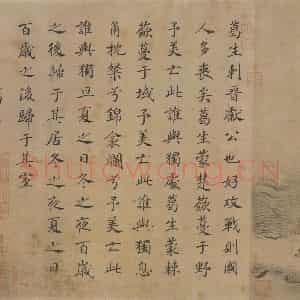 葛生刺晉獻公也好攻戰則國
人多喪矣葛生蒙楚蘞蔓于野
予美亡此誰與獨處葛生蒙棘
蘞蔓于域予美亡此誰與獨息
角枕粲兮錦衾爛兮予美亡此
誰與獨旦夏之日冬之夜百歲
之後歸于其居冬之夜夏之日
百歲之後歸于其室
Shufawang.CN